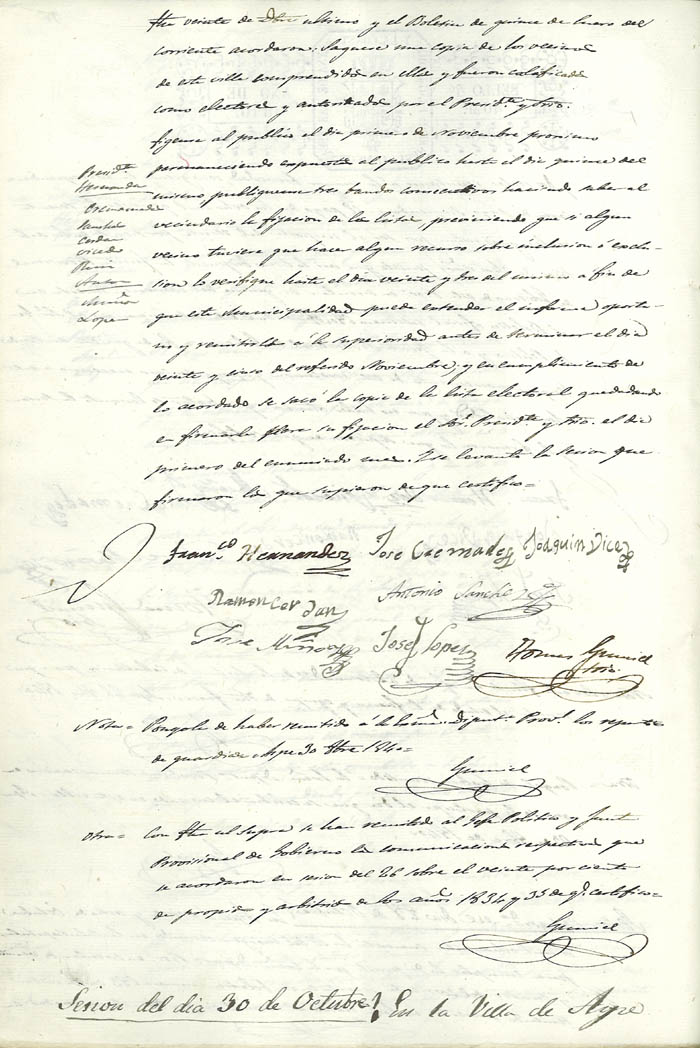 fha veinte de Dbre ultimo y el Boletin de quince de Enero del
corriente acordaron: Saquese una copia de los vecinos
de esta villa comprendidos en ella y fueron calificados
como electores y autorizada por el Presidte y srio.
figese al publico el dia primero de Noviembre proximo
permaneciendo expuesta al publico hasta el dia quince del
mismo publiquense tres bandos consecutivos haciendo saber al
vecindario la fijacion de las listas, previniendo que si algun
vecino tuviere que hacer algun recurso sobre inclusion ó exclu-
sion lo verifique hasta el dia veinte y tres del mismo a fin de
que esta Municipalidad pueda estender el informe oportu-
no y remitirlas á la superioridad antes de terminar el dia
veinte y cinco del referido Noviembre; y en cumplimiento de
lo acordado se sacó la copia de la lista electoral quedando
en firmarla para su fijacion el Sor. Presidte y srio. el dia
primero del enunciado mes. Y se levantó la sesion que
firmaron los que supieron de que certifico=
Presidte
Hernandez
Cremades
Sanchez
Cerdan
Vicedo
Muñoz
Lopez
Franco. Hernandez Jose Cremades Joaquin Vicedo
Ramon Cerdan Antonio Sanchez
Jose Muñoz Jose Lopez Tomas Gumiel
srio.
Nota= Pongola de haber remitido á la Excma. Diputn. Provl. los repartos
de guardias Aspe 30 8bre 1840=
Gumiel
Otra= Con fha ut supra se han remitido al Gefe Politico y Junta
Provisional de Gobierno las comunicaciones respectivas que
se acordaron en sesion del 26 sobre el veinte por ciento
de propios y arbitrios de los años 1834 y 35 de q. certifico=
Gumiel
Sesion del dia 30 de Octubre. En la Villa de Aspe